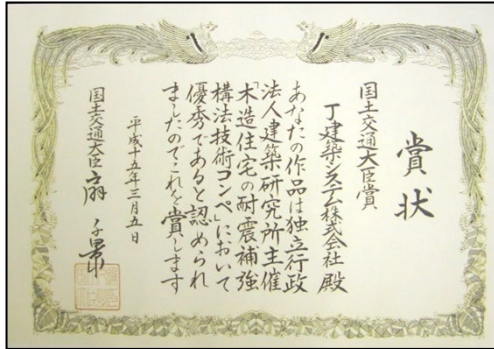 賞状
国土交通大臣賞
丁建築システム株式会社 殿
あなたの作品は独立行政
法人建築研究所主催
「木造住宅の耐震補強
構法技術コンペ」において
優秀であると認められ
ましたのでこれを賞します
平成十五年三月五日
国土交通大臣 扇 千景